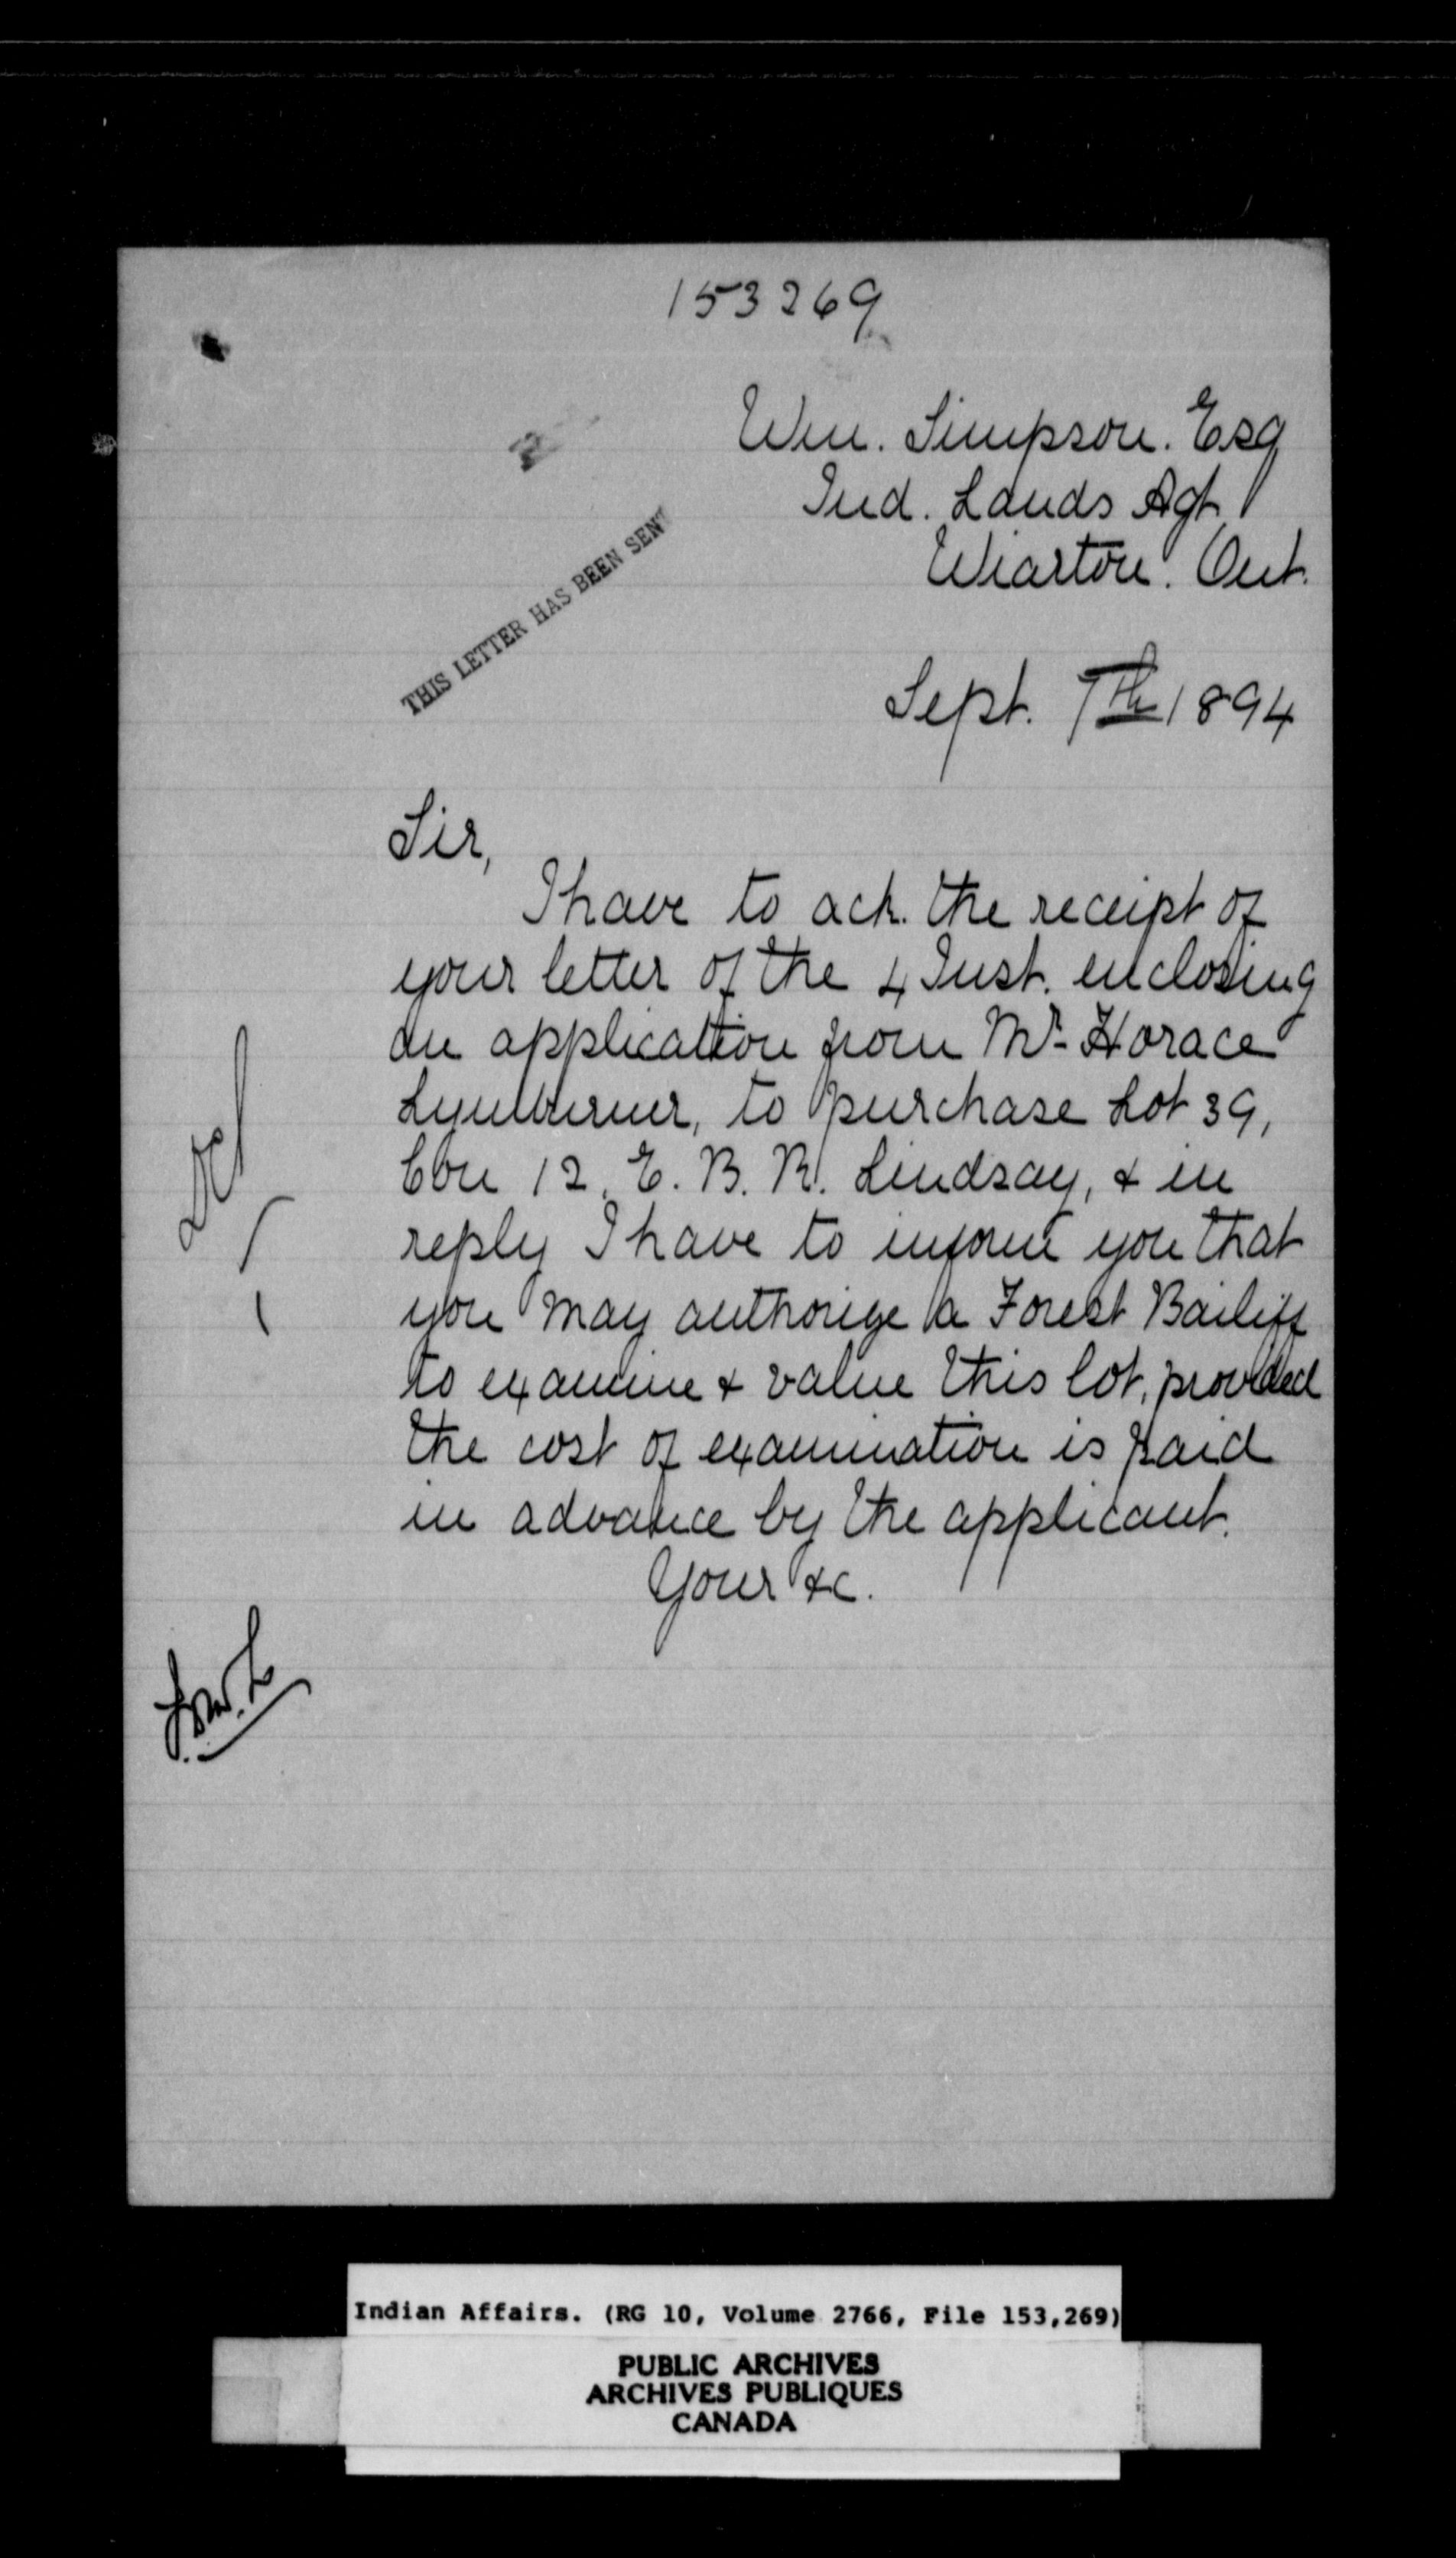 153269
Wm. Simpson. Esq
Ind. Lands Agt
Wiarton. Ont.
THIS LETTER HAS BEEN SENT
Sept. 7th 1894
Sir,
I have to ack. the receipt of
your letter of the 4 Inst. enclosing
an application from Mr. Horace
Lymburner, to purchase Lot 39,
Con 12, E. B. R. Lindsay, & in
reply I have to inform you that
you may authorize a Forest Bailiff
to examine & value this lot, provided
the cost of examination is paid
in advance by the applicant.
Your &c.
Indian Affairs. (RG 10, Volume 2766, File 153,269)
PUBLIC ARCHIVES
ARCHIVES PUBLIQUES
CANADA